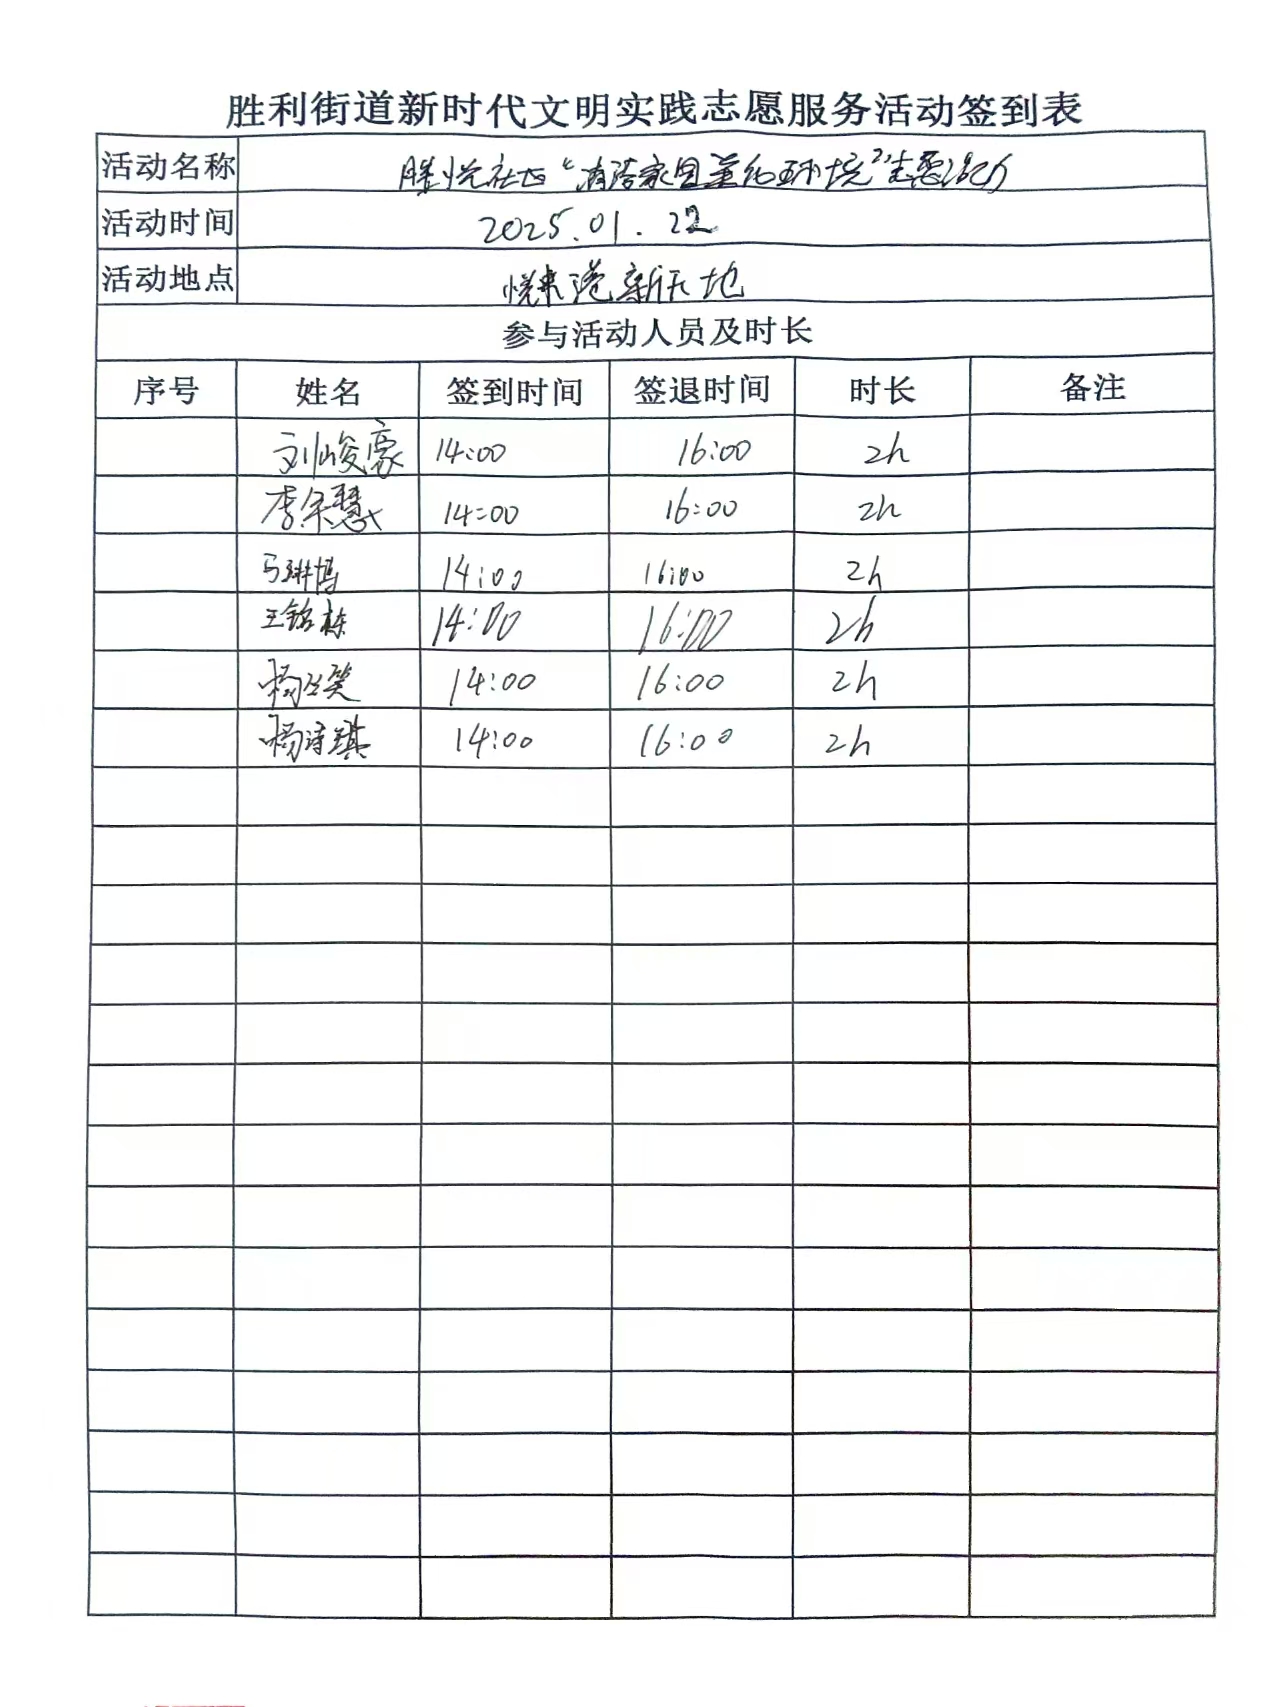 胜利街道新时代文明实践志愿服务活动签到表
活动名称 胜悦社区“清洁家园美化环境”志愿活动
活动时间 2025.01.22
活动地点 悦来港新天地
参与活动人员及时长
序号 姓名 签到时间 签退时间 时长 备注
刘峻豪 14:00 16:00 2h
李余慧 14:00 16:00 2h
马琳博 14:00 16:00 2h
王铭栋 14:00 16:00 2h
杨 笑 14:00 16:00 2h
杨诗琪 14:00 16:00 2h